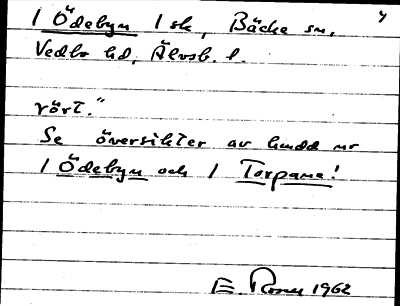 1 Ödebyn 1 sk, Bäcke sn,
Vedbo hd, Älvsb. l.
rört."
Se översikter av kudd nr
1 Ödebyn och 1 Torpane!
E. Rosen 1962